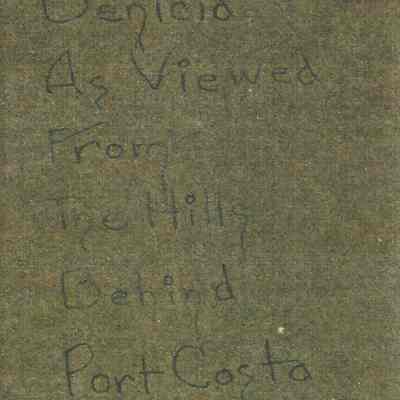 Benicia
As Viewed
From
The Hills
Behind
Port Costa